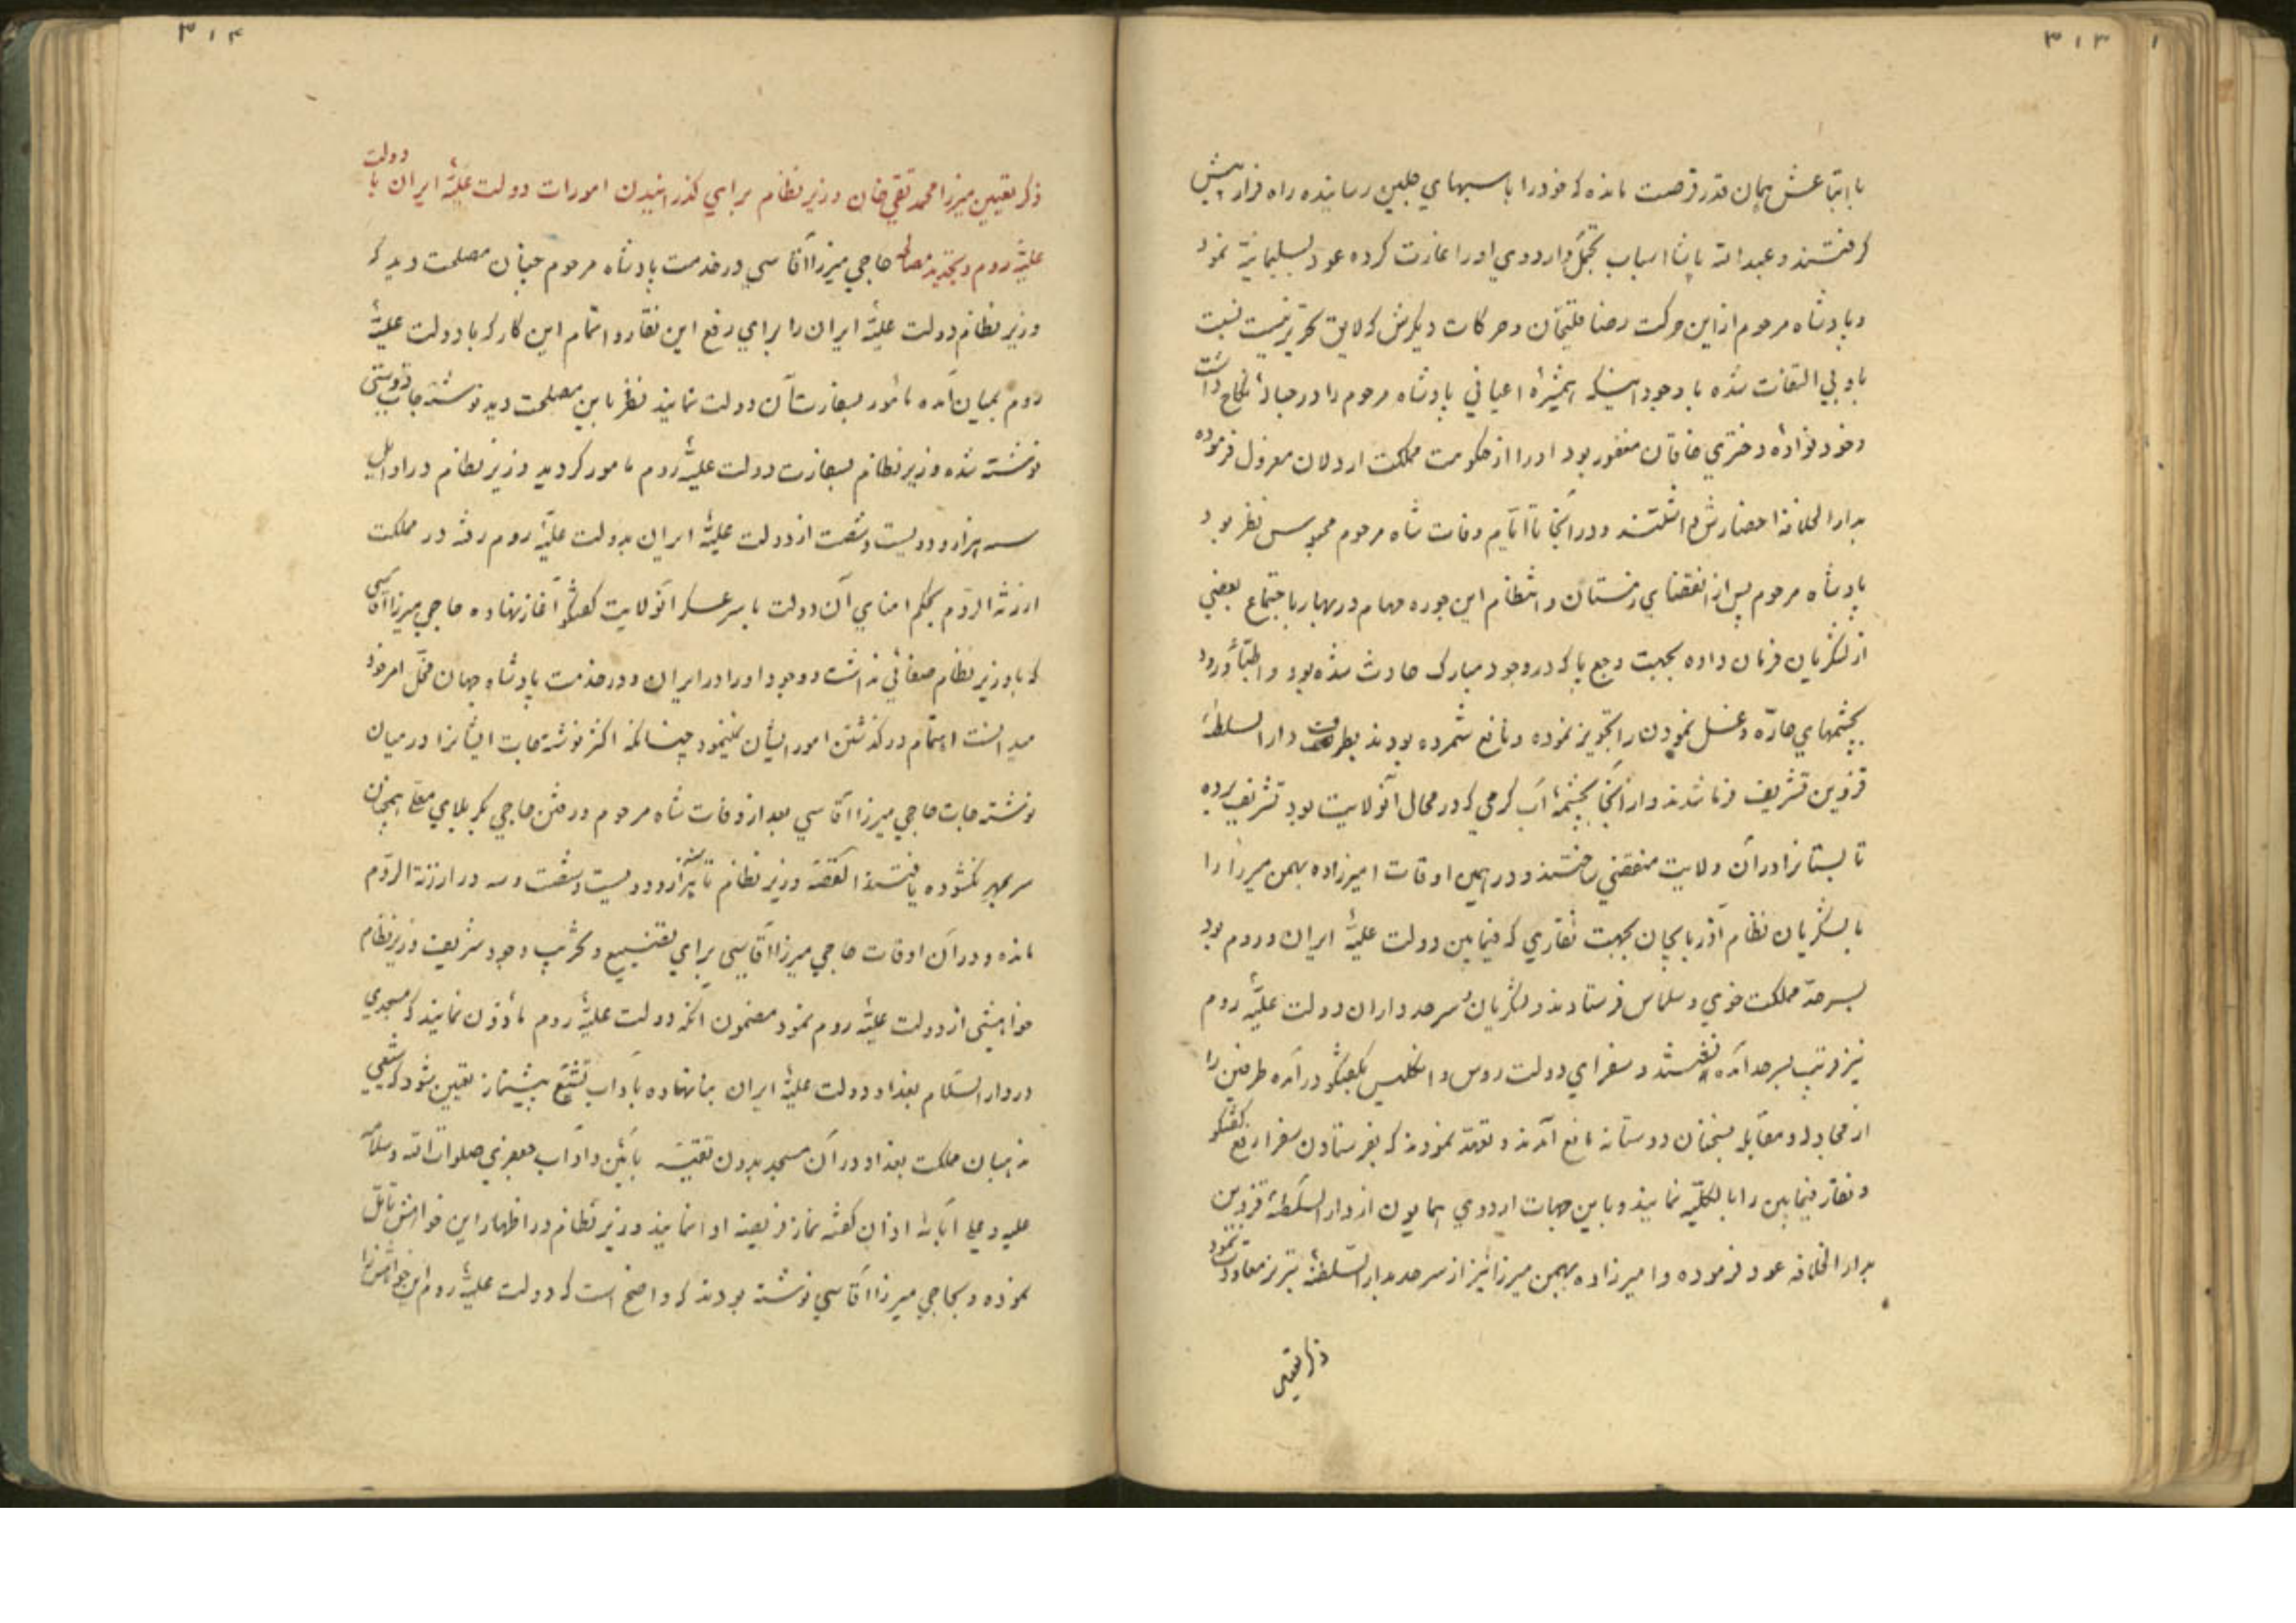 ۳۱۳
با اتباعش همان قدر فرصت مانده که خود را باسبهای جلپین رسانیده راه فرار پیش
گرفتند و عبدالله پاشا اسباب تجمل و اردوی او را غارت کرده عود بسلیمانیه نمود
و پادشاه مرحوم ازین حرکت رضا قلیخان و حرکات دیگرش که لایق تحریر نیست نسبت
باو بی التفات شده با وجود اینکه همشیرهٔ اعیانی پادشاه مرحوم را در حبالهٔ نکاح داشت
و خود نوادهٔ دختری خاقان مغفور بود او را از حکومت مملکت اردلان معزول فرموده
بدارالخلافه احضارش داشتند و در آنجا تا ایام وفات شاه مرحوم محبوس نظر بود
پادشاه مرحوم پس از انقضای زمستان و انتظام این جوره مهام در بهار باجتماع بعضی
از لشکریان فرمان داده بجهت وجع پا که در وجود مبارک حادث شده بود و اطبا ورود
بچشمهای حارّه و غسل نمودن را تجویز نموده و نافع شمرده بودند بطرف دارالسلطنهٔ
قزوین تشریف فرما شدند و از آنجا بچشمهٔ آب گرمی که در محال آنولایت بود تشریف برده
تابستانرا در آن ولایت منقضی ساختند و در همین اوقات امیرزاده بهمن میرزا را
با لشکریان نظام آذربایجان بجهت نقاری که فیمابین دولت علیهٔ ایران و روم بود
بسرحدّ مملکت خوی و سلماس فرستادند و لشکریان و سرحدداران دولت علیهٔ روم
نیز قریب بسرحد آمده نشستند و سفرای دولت روس و انگلیس بگفتگو در آمده طرفین را
از مجادله و مقابله بسخنان دوستانه مانع آمدند و تعهد نمودند که بفرستادن سفرا رفع گفتگو
و نقار فیمابین را بالکلیّه نمایند و باین جهات اردوی همایون از دارالسلطنهٔ قزوین
بدارالخلافه عود فرموده و امیرزاده بهمن میرزا نیز از سرحد بدارالسلطنهٔ تبریز معاودت نمود
ذکر تعیین
۳۱۴
ذکر تعیین میرزا محمد تقی خان وزیر نظام برای گذرانیدن امورات دولت علیهٔ ایران با دولت
علیهٔ روم و تجدید مصالحه حاجی میرزا آقاسی در خدمت پادشاه مرحوم چنان مصلحت دید که
وزیر نظام دولت علیهٔ ایران را برای رفع این نقار و اتمام این کار که با دولت علیهٔ
روم بمیان آمده مأمور بسفارت آن دولت نمایند نظر باین مصلحت دید نوشته جات دوستی
نوشته شده وزیر نظام بسفارت دولت علیهٔ روم مامور گردید وزیر نظام در اوایل
سنه هزار و دویست و شصت از دولت علیهٔ ایران بدولت علیهٔ روم رفته در مملکت
ارزنة الروم بحکم امنای آن دولت با سرعسکر آنولایت گفتگو آغاز نهاده حاجی میرزا آقاسی
که با وزیر نظام صفائی نداشت و وجود او را در ایران و در خدمت پادشاه جهان مخلّ امر خود
میدانست اهتمام در گذشتن امور ایشان نمینمود چنانکه اکثر نوشته جات ایشانرا در میان
نوشته جات حاجی میرزا آقاسی بعد از وفات شاه مرحوم و رفتن حاجی بکربلای معلی همچنان
سر بمهر نگشوده یافتند القصه وزیر نظام تا سنه هزار و دویست و شصت و سه در ارزنة الروم
مانده و در آن اوقات حاجی میرزا آقاسی برای تضییع و تخریب وجود شریف وزیر نظام
خواهشی از دولت علیهٔ روم نمود مضمون آنکه دولت علیهٔ روم مأذون نمایند که مسجدی
در دارالسّلام بغداد دولت علیهٔ ایران بنا نهاده بآداب تشیّع پیشنماز تعیین شود که شیعی
مذهبان مملکت بغداد در آن مسجد بدون تقیّه بآئین و آداب جعفری صلوات الله و سلامه
علیه و علی آبائه اذان گفته نماز فریضه ادا نمایند وزیر نظام در اظهار این خواهش تأمّل
نموده و بحاجی میرزا آقاسی نوشته بودند که واضح است که دولت علیهٔ روم این خواهش را